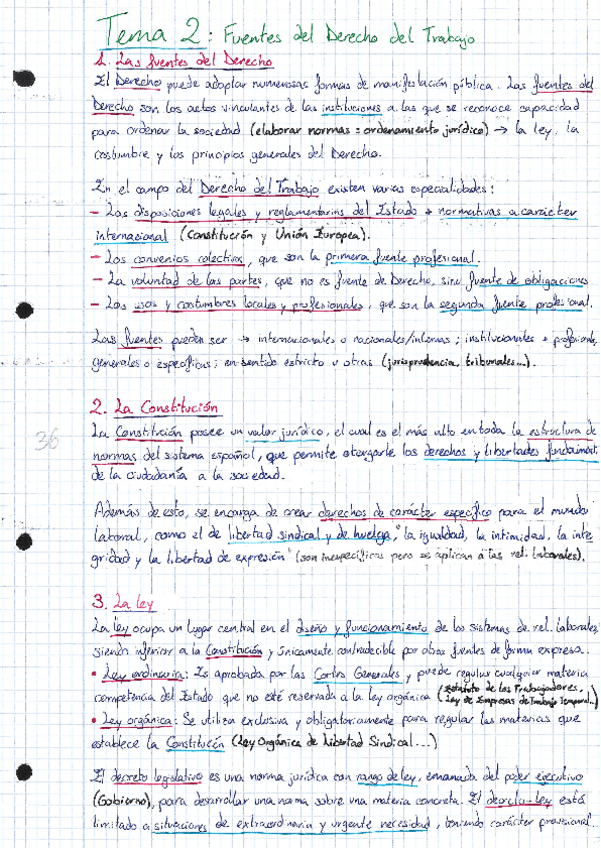 Tema 2: Fuentes del Derecho del Trabajo
1. Las fuentes del Derecho
El Derecho puede adoptar numerosas formas de manifestación pública. Las fuentes del
Derecho son los actos vinculantes de las instituciones a las que se reconoce capacidad
para ordenar la sociedad (elaborar normas = ordenamiento jurídico) → la ley, la
costumbre y los principios generales del Derecho.
En el campo del Derecho del Trabajo existen varias especialidades:
- Las disposiciones legales y reglamentarias del Estado + normativas a carácter
internacional (Constitución y Unión Europea).
- Los convenios colectivos, que son la primera fuente profesional.
- La voluntad de las partes, que no es fuente de Derecho, sino fuente de obligaciones
- Los usos y costumbres locales y profesionales, que son la segunda fuente profesional.
Las fuentes pueden ser → internacionales o nacionales/internas; institucionales o profesionale,
generales o específicas; en sentido estricto u otras (jurisprudencia, tribunales...).
2. La Constitución
36
La Constitución posee un valor jurídico, el cual es el más alto en toda la estructura de
normas del sistema español, que permite otorgarle los derechos y libertades fundament
de la ciudadanía a la sociedad.
Además de esto, se encarga de crear derechos de carácter específico para el mundo
laboral, como el de libertad sindical y de huelga, "la igualdad, la intimidad, la inte
gridad y la libertad de expresión" (son inespecíficos pero se aplican a las rel. laborales).
3. La ley
La ley ocupa un lugar central en el diseño y funcionamiento de los sistemas de rel. laborales,
siendo inferior a la Constitución y únicamente contradecible por otras fuentes de forma expresa.
• Ley ordinaria: Es aprobada por las Cortes Generales, y puede regular cualquier materia
competencia del Estado que no esté reservada a la ley orgánica (Estatuto de los Trabajadores,
Ley de Empresas de Trabajo Temporal...)
• Ley orgánica: Se utiliza exclusiva y obligatoriamente para regular las materias que
establece la Constitución (Ley Orgánica de Libertad Sindical...)
El decreto legislativo es una norma jurídica con rango de ley, emanada del poder ejecutivo
(Gobierno), para desarrollar una norma sobre una materia concreta. El decreto-ley está
limitado a situaciones de extraordinaria y urgente necesidad, teniendo carácter provisional.